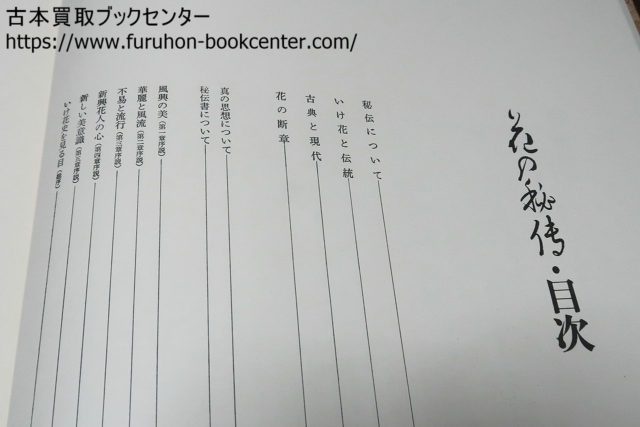 古本買取ブックセンター
https://www.furuhon-bookcenter.com/
花の秘伝・目次
秘伝について
いけ花と伝統
古典と現代
花の断章
真の思想について
秘伝書について
風興の美(第一章序説)
華麗と風流(第二章序説)
不易と流行(第三章序説)
新興花人の心(第四章序説)
新しい美意識(第五章序説)
いけ花史を見る目(総序)